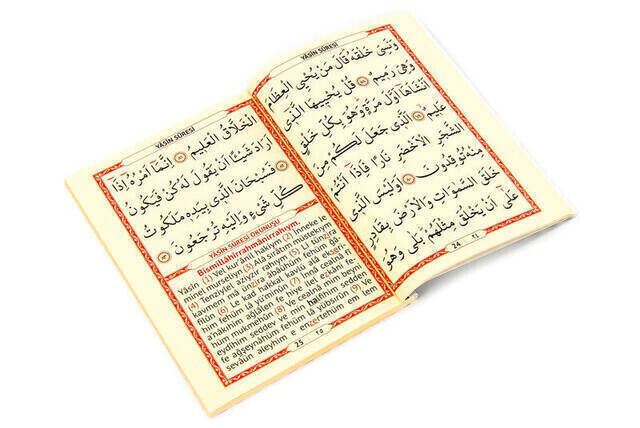 YÂSÎN SÛRESİ
وَنَسِيَ خَلْقَهُ قَالَ مَنْ يُحْيِي الْعِظَامَ
وَهِيَ رَمِيمٌ ﴿٧٨﴾ قُلْ يُحْيِيهَا الَّذِي
اَنْشَاَهَا اَوَّلَ مَرَّةٍ وَهُوَ بِكُلِّ خَلْقٍ
عَلِيمٌ ﴿٧٩﴾ اَلَّذِي جَعَلَ لَكُمْ مِنَ
الشَّجَرِ الْاَخْضَرِ نَارًا فَاِذَا اَنْتُمْ
مِنْهُ تُوقِدُونَ ﴿٨٠﴾ اَوَلَيْسَ الَّذِي
خَلَقَ السَّمٰوَاتِ وَالْاَرْضَ بِقَادِرٍ
عَلٰى اَنْ يَخْلُقَ مِثْلَهُمْ بَلٰى وَهُوَ
24
YÂSÎN SÛRESİ
الْخَلَّاقُ الْعَلِيمُ ﴿٨١﴾ اِنَّمَا اَمْرُهُ اِذَا
اَرَادَ شَيْئًا اَنْ يَقُولَ لَهُ كُنْ فَيَكُونُ
﴿٨٢﴾ فَسُبْحَانَ الَّذِي بِيَدِهِ مَلَكُوتُ
كُلِّ شَيْءٍ وَاِلَيْهِ تُرْجَعُونَ ﴿٨٣﴾
YÂSÎN SÛRESİ OKUNUŞU
Bismillâhirrahmânirrahıym.
Yâsîn (1) Vel kur'ânil hakiym. (2) İnneke le
minel murseliyn (3) Alâ sırâtım müstekıym
(4) Tenziylel aziyzir rahıym (5) Li tünzira
kavmem mâ ünzira âbâühüm fehüm ğâ
filûn (6) Le kad hakkal kavlü alâ ekseri
him fehüm lâ yü'minûn (7) İnnâ cealnâ fi
a'nâkıhim ağlâlen fe hiye ilel ezkâni fe
hüm mukmehûn (8) Ve cealnâ mim beyni
eydîhim seddev ve min halfihim sedden
fe ağşeynâhüm fehüm lâ yübsirûn (9) Ve
sevâün aleyhim e enzertehüm em lem
25